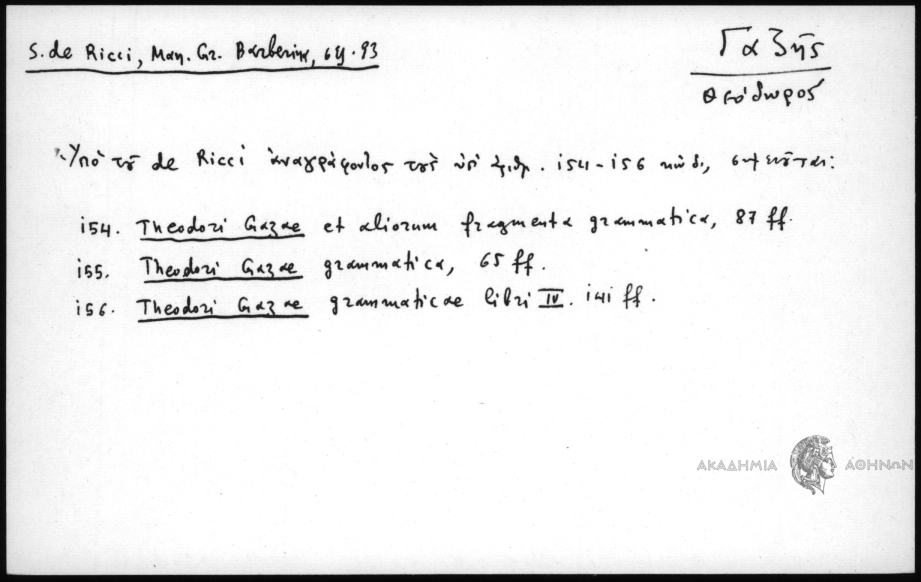 S. de Ricci, Man. Gr. Barberin, σελ. 93
Γαζῆς
Θεόδωρος
Ὑπὸ τοῦ de Ricci ἀναγράφοντος τοὺς ὑπ' ἀριθμ. 154-156 κώδ., σημειοῦται:
154. Theodori Gazae et aliorum fragmenta grammatica, 87 ff.
155. Theodori Gazae grammatica, 65 ff.
156. Theodori Gazae grammaticae libri IV. 141 ff.
ΑΚΑΔΗΜΙΑ ΑΘΗΝΩΝ